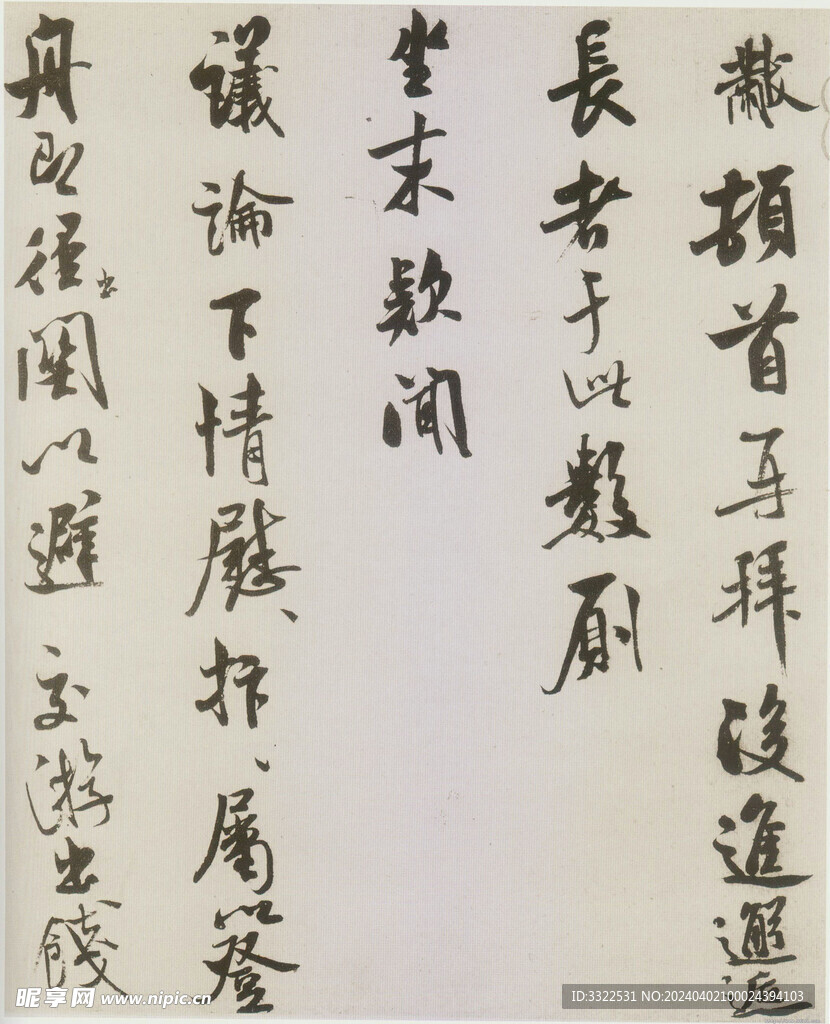 黻頓首再拜後進邂逅
長者于此數厠
坐末款聞
議論下情慰、抃、屬以登
舟即徑出關以避交游出餞
昵享网 www.nipic.cn
ID:3322531 NO:20240402100024394103